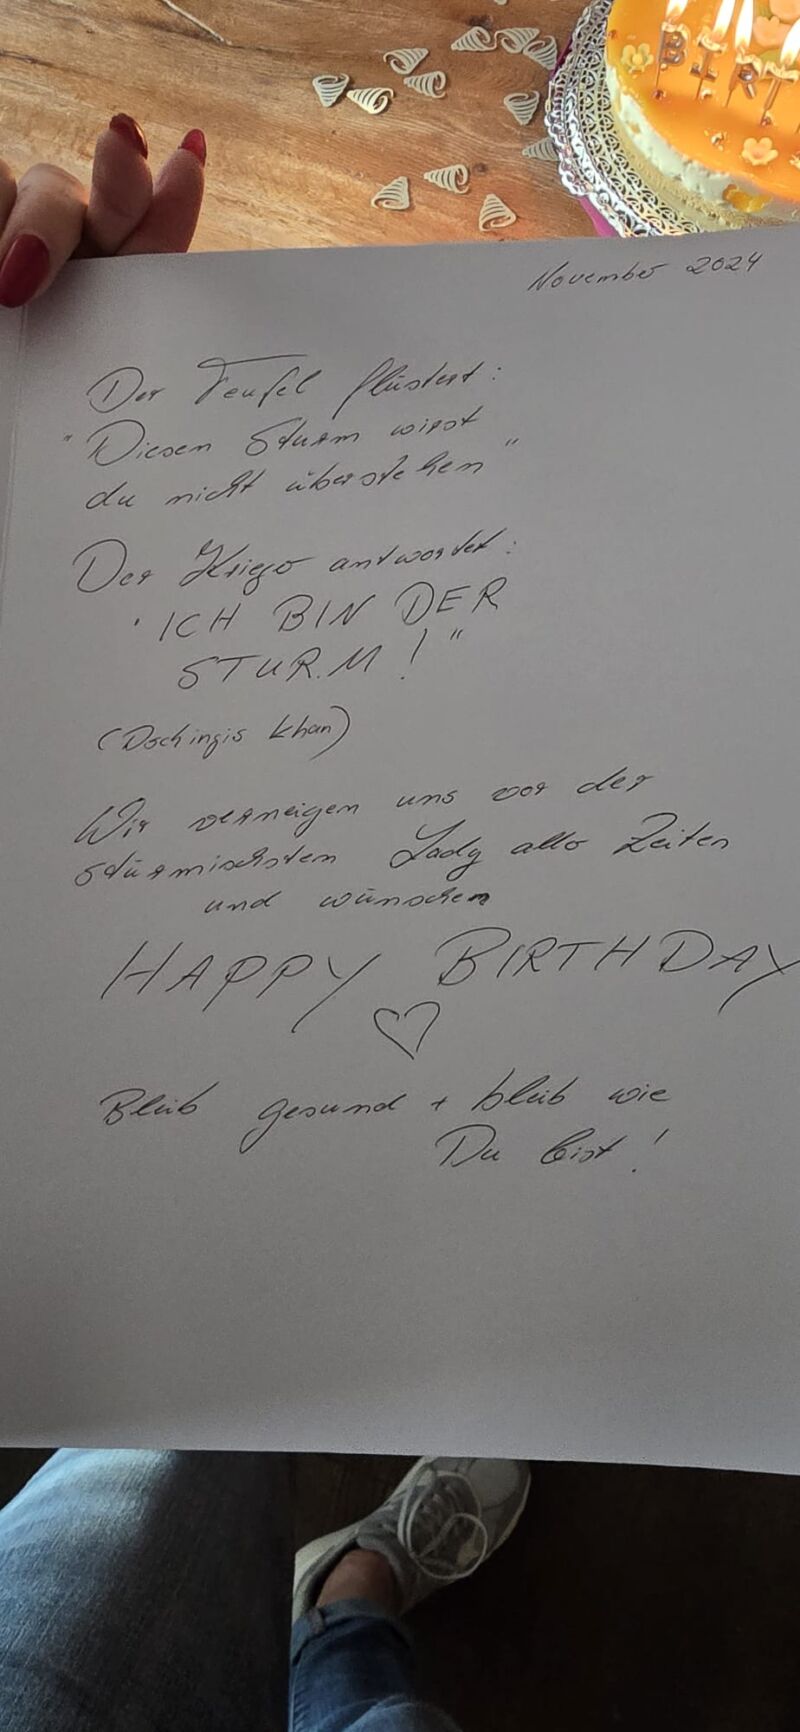 BIRT
November 2024
Der Teufel flüstert:
"Diesen Sturm wirst
du nicht überstehen"
Der Krieger antwortet:
"ICH BIN DER
STURM!"
(Dschingis Khan)
Wir verneigen uns vor der
stürmischsten Lady aller Zeiten
und wünschen
HAPPY BIRTHDAY
♡
Bleib gesund + bleib wie
Du bist!